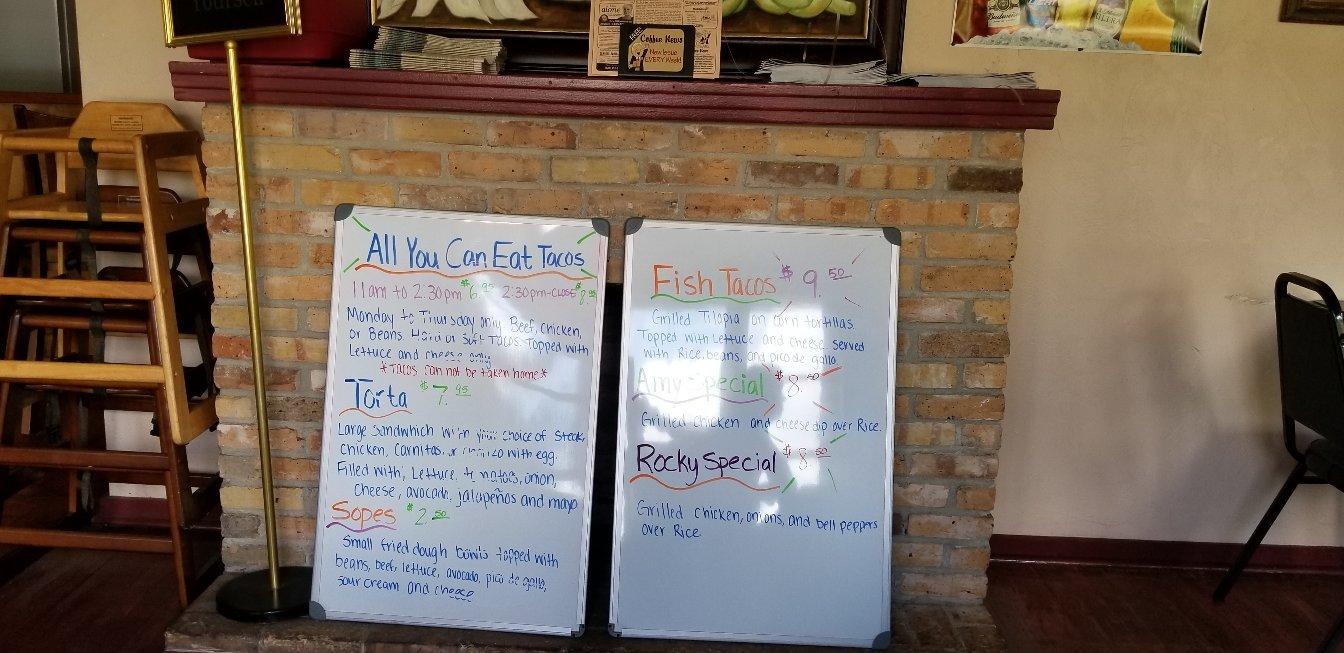 Yourself
alone
FREE!
Coffee News
New Issue
EVERY Week!
Budweiser
ULTRA
All You Can Eat Tacos
11am to 2:30pm $6.95 2:30pm-close $8.95
Monday to Thursday only Beef, chicken,
or Beans Hard or Soft Tacos. Topped with
Lettuce and cheese only
*Tacos can not be taken home*
Torta $7.95
Large Sandwhich with your choice of Steak,
chicken, Carnitas, or chorizo with egg.
Filled with, Lettuce, tomatoes, onion,
cheese, avocado, jalapeños and mayo
Sopes $2.50
Small fried dough bowls topped with
beans, beef, lettuce, avocado, pico de gallo,
sour cream and cheese
Fish Tacos $9.50
Grilled Tilapia on corn tortillas
Topped with Lettuce and cheese. served
with Rice, beans, and pico de gallo.
Amy Special $8.50
Grilled chicken and cheese dip over Rice.
Rocky Special $8.50
Grilled chicken, onions, and bell peppers
over Rice